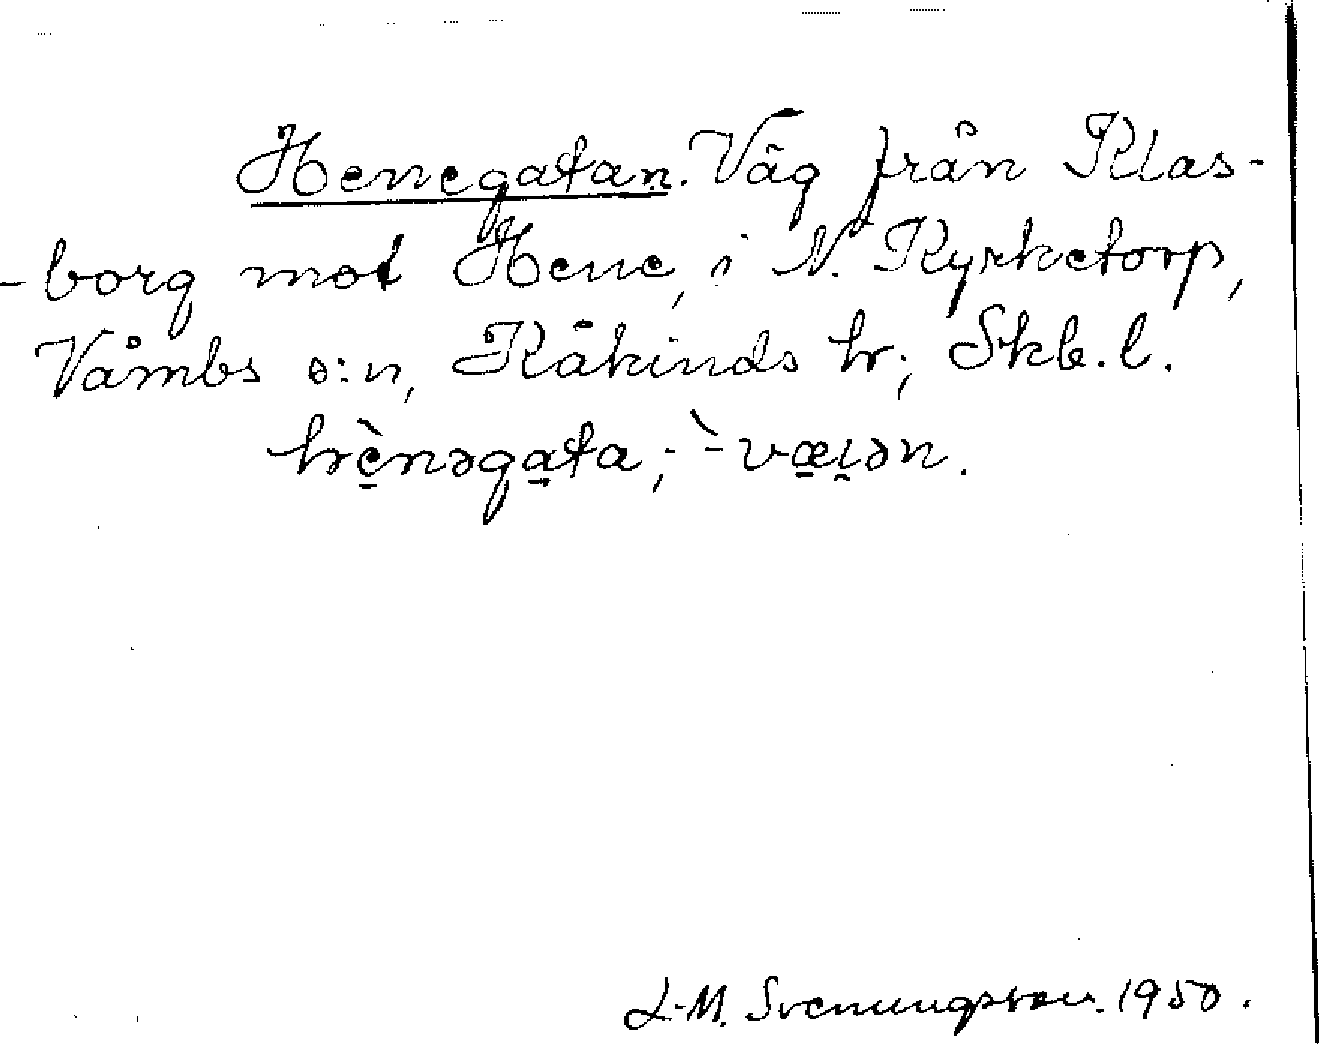 Henegatan. Väg från Klas-
-borg mot Hene, i N. Kyrketorp,
Våmbs s:n, Kåkinds hr; Skb.l.
hènəgata; `-væɩ̯ən.
L-M. Svenungsson. 1950.